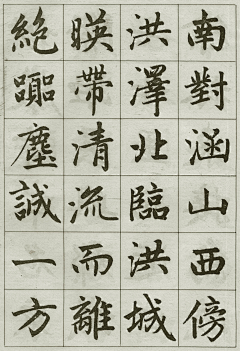 南對涵山西傍
洪澤北臨洪城
暎帶清流而離
絶囂塵誠一方